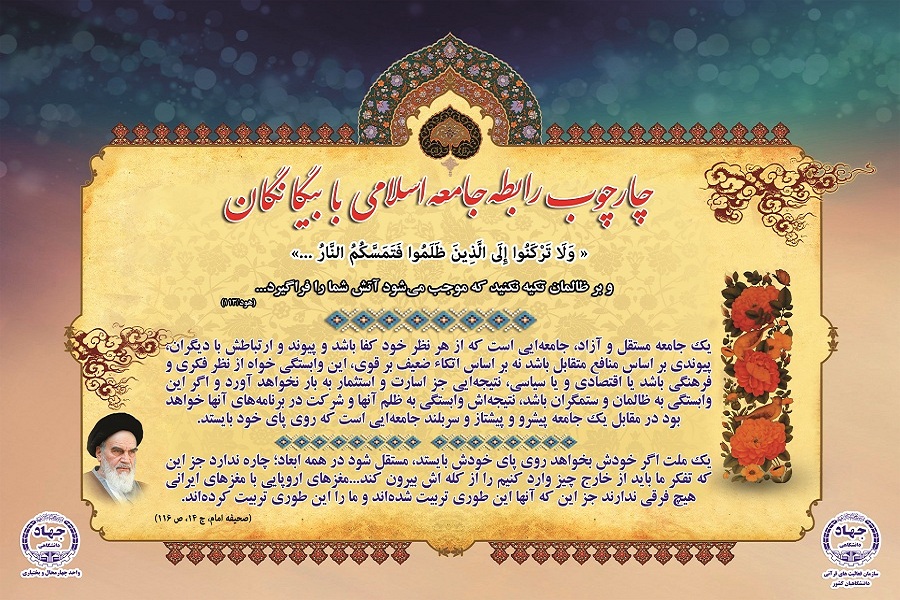 چارچوب رابطه جامعه اسلامی با بیگانگان
« وَلَا تَرْكَنُوا إِلَى الَّذِينَ ظَلَمُوا فَتَمَسَّكُمُ النَّارُ ...»
و بر ظالمان تکیه نکنید که موجب می‌شود آتش شما را فراگیرد...
(هود/۱۱۳)
یک جامعه مستقل و آزاد، جامعه‌ایی است که از هر نظر خود کفا باشد و پیوند و ارتباطش با دیگران،
پیوندی بر اساس منافع متقابل باشد نه بر اساس اتکاء ضعیف بر قوی، این وابستگی خواه از نظر فکری و
فرهنگی باشد یا اقتصادی و یا سیاسی، نتیجه‌ایی جز اسارت و استثمار به بار نخواهد آورد و اگر این
وابستگی به ظالمان و ستمگران باشد، نتیجه‌اش وابستگی به ظلم آنها و شرکت در برنامه‌های آنها خواهد
بود در مقابل یک جامعه پیشرو و پیشتاز و سربلند جامعه‌ایی است که روی پای خود بایستد.
یک ملت اگر خودش بخواهد روی پای خودش بایستد، مستقل شود در همه ابعاد؛ چاره ندارد جز این
که تفکر ما باید از خارج چیز وارد کنیم را از کله اش بیرون کند...مغزهای اروپایی با مغزهای ایرانی
هیچ فرقی ندارند جز این که آنها این طوری تربیت شده‌اند و ما را این طوری تربیت کرده‌اند.
(صحیفه امام، ج ۱۴، ص ۱۱۶)
جهاد
دانشگاهی
سازمان فعالیت های قرآنی
دانشگاهیان کشور
جهاد
دانشگاهی
واحد چهارمحال و بختیاری